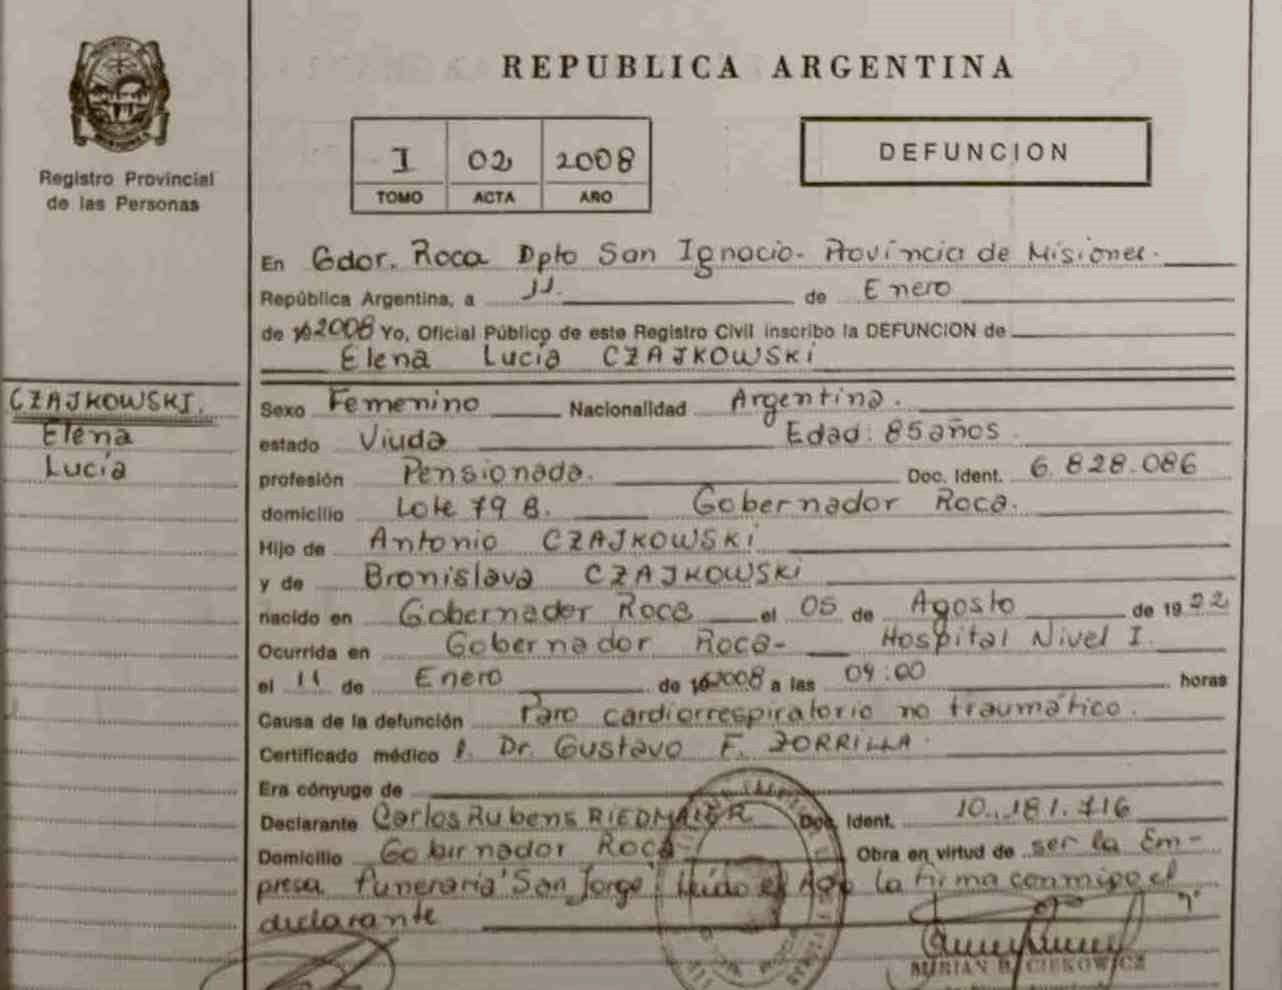 REPUBLICA ARGENTINA
Registro Provincial
de las Personas
I 02 2008
TOMO ACTA AÑO
DEFUNCION
En Gdor. Roca Dpto San Ignacio - Provincia de Misiones.
República Argentina, a 11. de Enero
de 2008 Yo, Oficial Público de este Registro Civil inscribo la DEFUNCION de
Elena Lucía CZAJKOWSKI
CZAJKOWSKI.
Elena
Lucía
Sexo Femenino Nacionalidad Argentina.
estado Viuda Edad: 85 años.
profesión Pensionada. Doc. Ident. 6.828.086
domicilio Lote 79 B. Gobernador Roca.
Hijo de Antonio CZAJKOWSKI
y de Bronislava CZAJKOWSKI
nacido en Gobernador Roca el 05 de Agosto de 1922
Ocurrida en Gobernador Roca - Hospital Nivel I.
el 11 de Enero de 2008 a las 04:00 horas
Causa de la defunción Paro cardiorrespiratorio no traumático.
Certificado médico Dr. Gustavo F. ZORRILLA.
Era cónyuge de
Declarante Carlos Rubens RIEDMAIER Doc. Ident. 10.181.716
Domicilio Gobernador Roca Obra en virtud de ser la Em-
presa funeraria "San Jorge" Leído el Acta la firma conmigo el
declarante